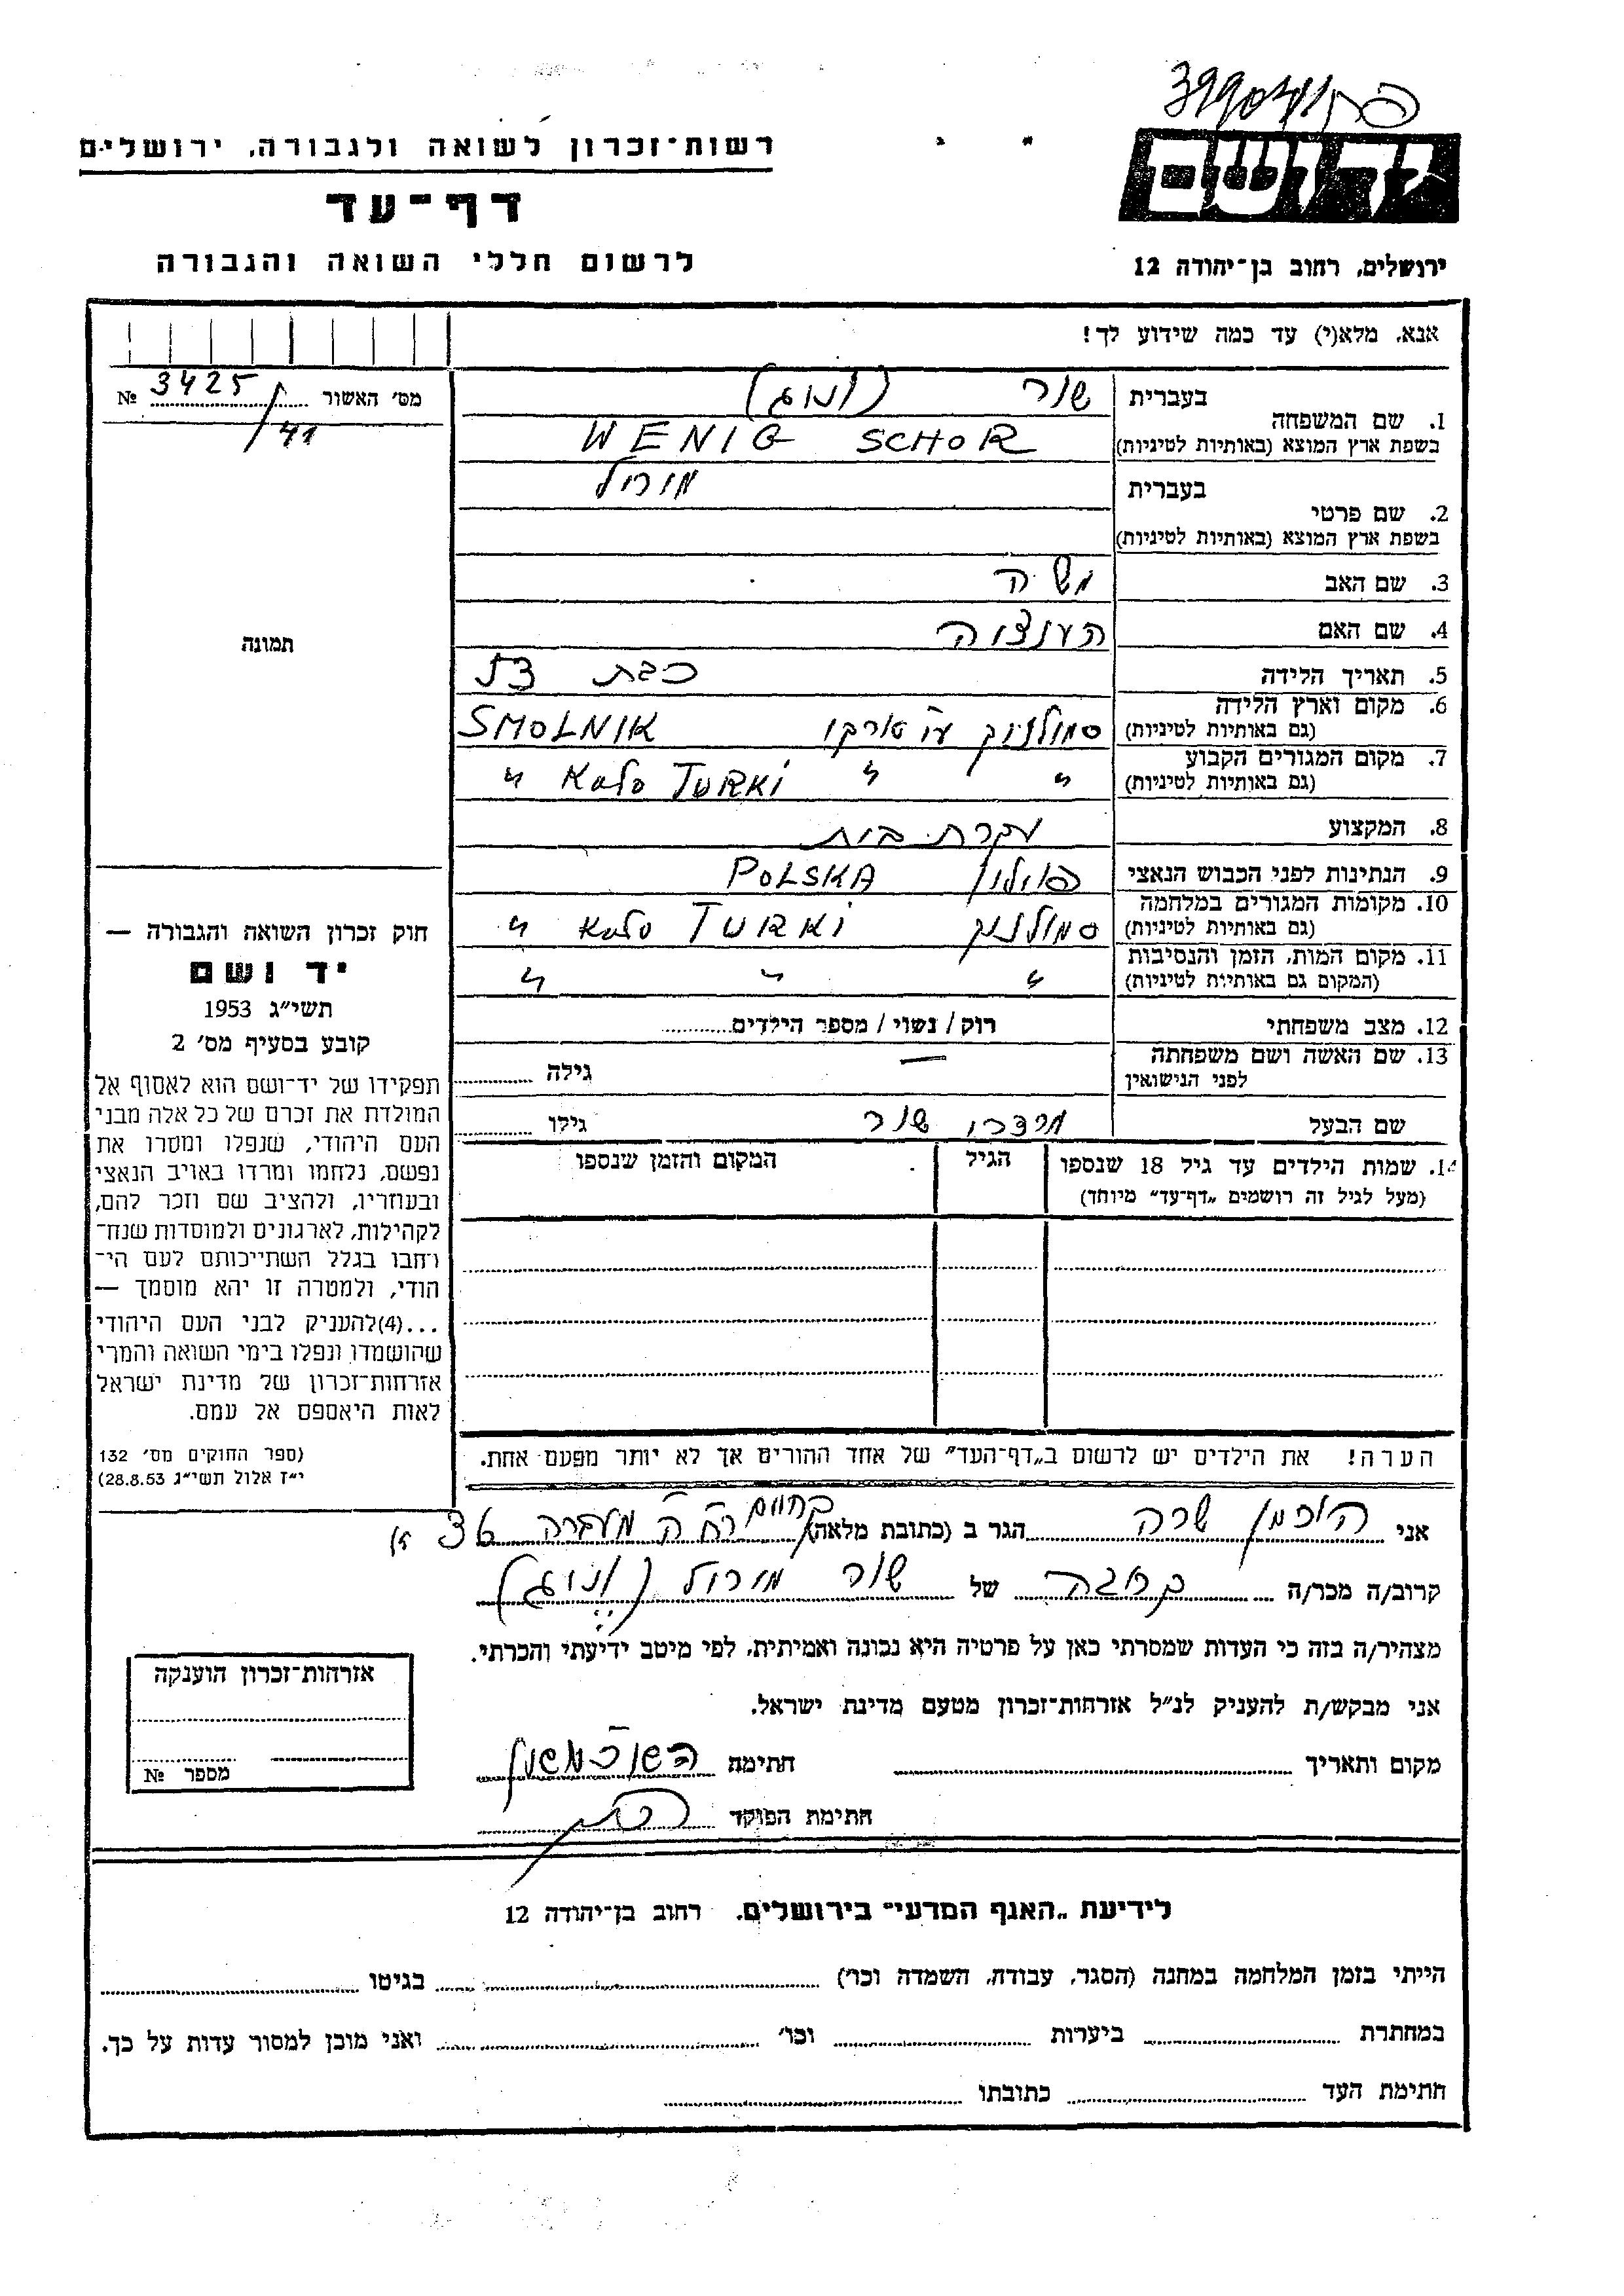 רשות־זכרון לשואה ולגבורה, ירושלים
דף־עד
לרשום חללי השואה והגבורה
יד ושם
ירושלים, רחוב בן־יהודה 12
אנא, מלא(י) עד כמה שידוע לך!
מס׳ האשור № 3425/41
1. שם המשפחה
בעברית שור
בשפת ארץ המוצא (באותיות לטיניות) WENIG SCHOR
2. שם פרטי
בעברית
בשפת ארץ המוצא (באותיות לטיניות)
3. שם האב משה
4. שם האם
5. תאריך הלידה כבת
6. מקום וארץ הלידה
(גם באותיות לטיניות) סמולניק SMOLNIK
7. מקום המגורים הקבוע
(גם באותיות לטיניות) " " Kolo TURKI "
8. המקצוע עקרת בית
9. הנתינות לפני הכבוש הנאצי פולין POLSKA
10. מקומות המגורים במלחמה
(גם באותיות לטיניות) סמולניק Kolo TURKI "
11. מקום המות, הזמן והנסיבות
(המקום גם באותיות לטיניות) " " "
12. מצב משפחתי רוק/ נשוי/ מספר הילדים
13. שם האשה ושם משפחתה
לפני הנישואין — גילה
שם הבעל מרדכי שור גילו
14. שמות הילדים עד גיל 18 שנספו
(מעל לגיל זה רושמים „דף־עד” מיוחד)
הגיל
המקום והזמן שנספו
הערה! את הילדים יש לרשום ב„דף־העד” של אחד ההורים אך לא יותר מפעם אחת.
תמונה
חוק זכרון השואה והגבורה —
יד ושם
תשי״ג 1953
קובע בסעיף מס׳ 2
תפקידו של יד־ושם הוא לאסוף אל
המולדת את זכרם של כל אלה מבני
העם היהודי, שנפלו ומסרו את
נפשם, נלחמו ומרדו באויב הנאצי
ובעוזריו, ולהציב שם וזכר להם,
לקהילות, לארגונים ולמוסדות שנח־
רחבו בגלל השתייכותם לעם הי־
הודי, ולמטרה זו יהא מוסמך —
...(4)להעניק לבני העם היהודי
שהושמדו ונפלו בימי השואה והמרי
אזרחות־זכרון של מדינת ישראל
לאות היאספם אל עמם.
(ספר החוקים מס׳ 132
י״ז אלול תשי״ג 28.8.53)
אני הוכמן שרה הגר ב (כתובת מלאה) מעברה
קרוב/ה מכר/ה קרובה של שור
מצהיר/ה בזה כי העדות שמסרתי כאן על פרטיה היא נכונה ואמיתית, לפי מיטב ידיעתי והכרתי.
אני מבקש/ת להעניק לנ״ל אזרחות־זכרון מטעם מדינת ישראל.
מקום ותאריך חתימה
חתימת הפוקד
אזרחות־זכרון הוענקה
מספר №
לידיעת „האגף המדעי” בירושלים, רחוב בן־יהודה 12
הייתי בזמן המלחמה במחנה (הסגר, עבודה, השמדה וכו׳) בגיטו
במחתרת ביערות וכו׳ ואני מוכן למסור עדות על כך.
חתימת העד כתובתו